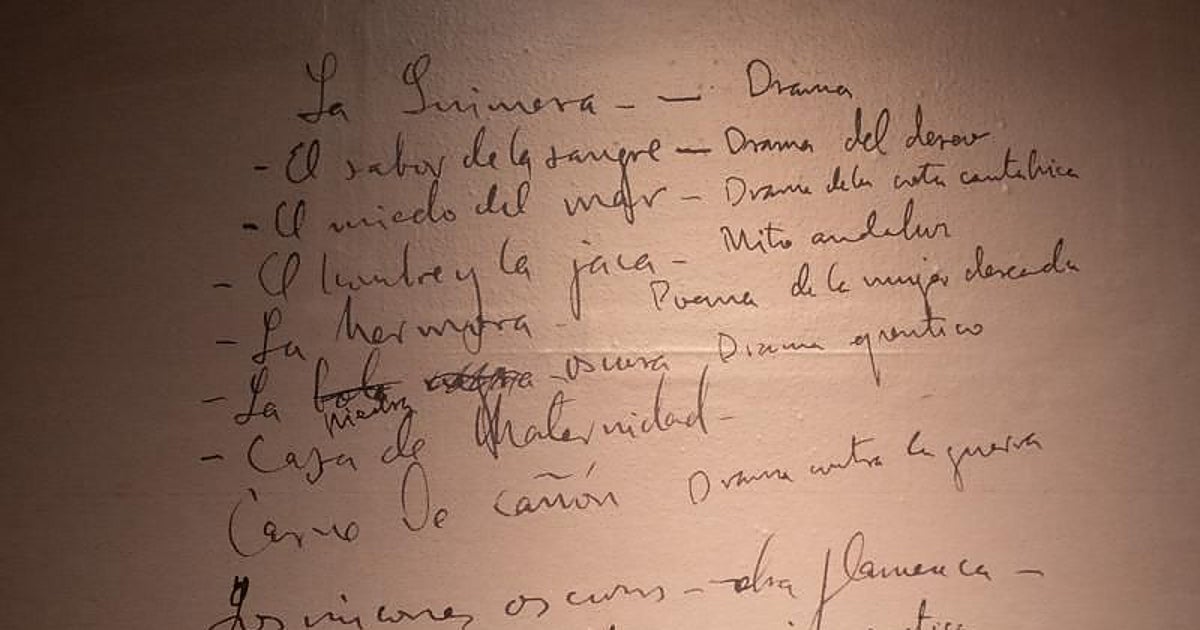 La Quimera - — Drama
- El sabor de la sangre — Drama del deseo
- El miedo del mar - Drama de la costa cantabrica
- El hombre y la jaca - Mito andaluz
- La hermosa - Poema de la mujer deseada
- La bola negra oscura Drama epentico
piedra
- Casa de Maternidad -
Carne de cañón Drama contra la guerra
Los rincones oscuros - obra flamenca -